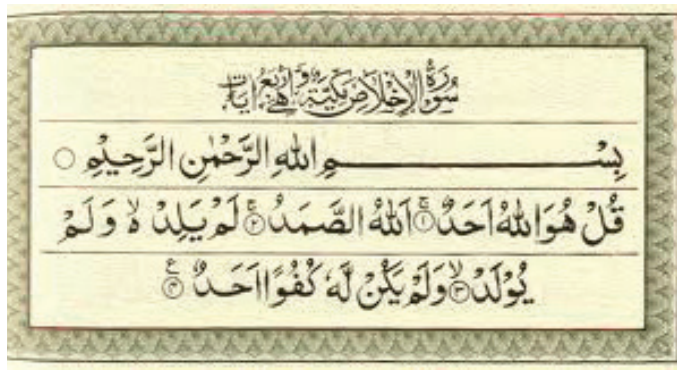 سُورَةُ الْإِخْلَاصِ مَكِّيَّةٌ وَهِيَ اَرْبَعُ اٰيَاتٍ
بِسْمِ اللهِ الرَّحْمٰنِ الرَّحِيْمِ ○
قُلْ هُوَ اللهُ اَحَدٌ ۚ ﴿١﴾ اَللهُ الصَّمَدُ ۚ ﴿٢﴾ لَمْ يَلِدْ ۙ وَلَمْ
يُوْلَدْ ۙ ﴿٣﴾ وَلَمْ يَكُنْ لَّهٗ كُفُوًا اَحَدٌ ﴿٤﴾ ع